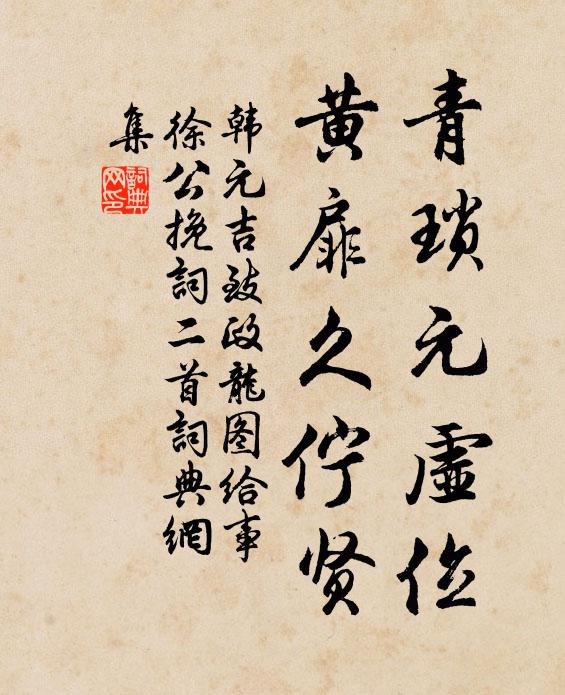 青瑣元虛位
黄扉久佇贤
韩元吉致政龍图给事
徐公挽詞二首詞典網
集
詞典網印